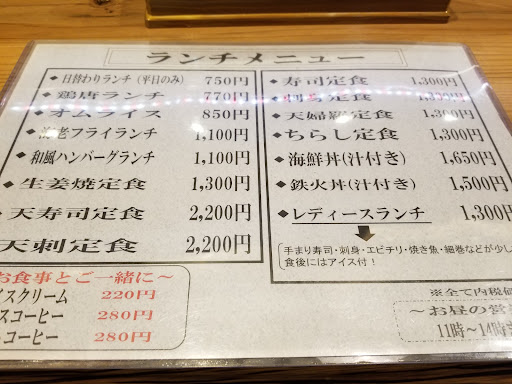 ランチメニュー
◆日替わりランチ（平日のみ） 750円
◆鶏唐ランチ 770円
◆オムライス 850円
老フライランチ 1,100円
◆和風ハンバーグランチ 1,100円
◆生姜焼定食 1,300円
◆天寿司定食 2,200円
天刺定食 2,200円
お食事とご一緒に～
イスクリーム 220円
スコーヒー 280円
コーヒー 280円
◆寿司定食 1,300円
定食
◆天婦羅定食 1,300円
◆ちらし定食 1,300円
◆海鮮丼(汁付き) 1,650円
◆鉄火丼(汁付き) 1,500円
◆レディースランチ 1,300円
手まり寿司・刺身・エビチリ・焼き魚・細巻などが少し
食後にはアイス付！
※全て内税価
～お昼の営
11時～14時